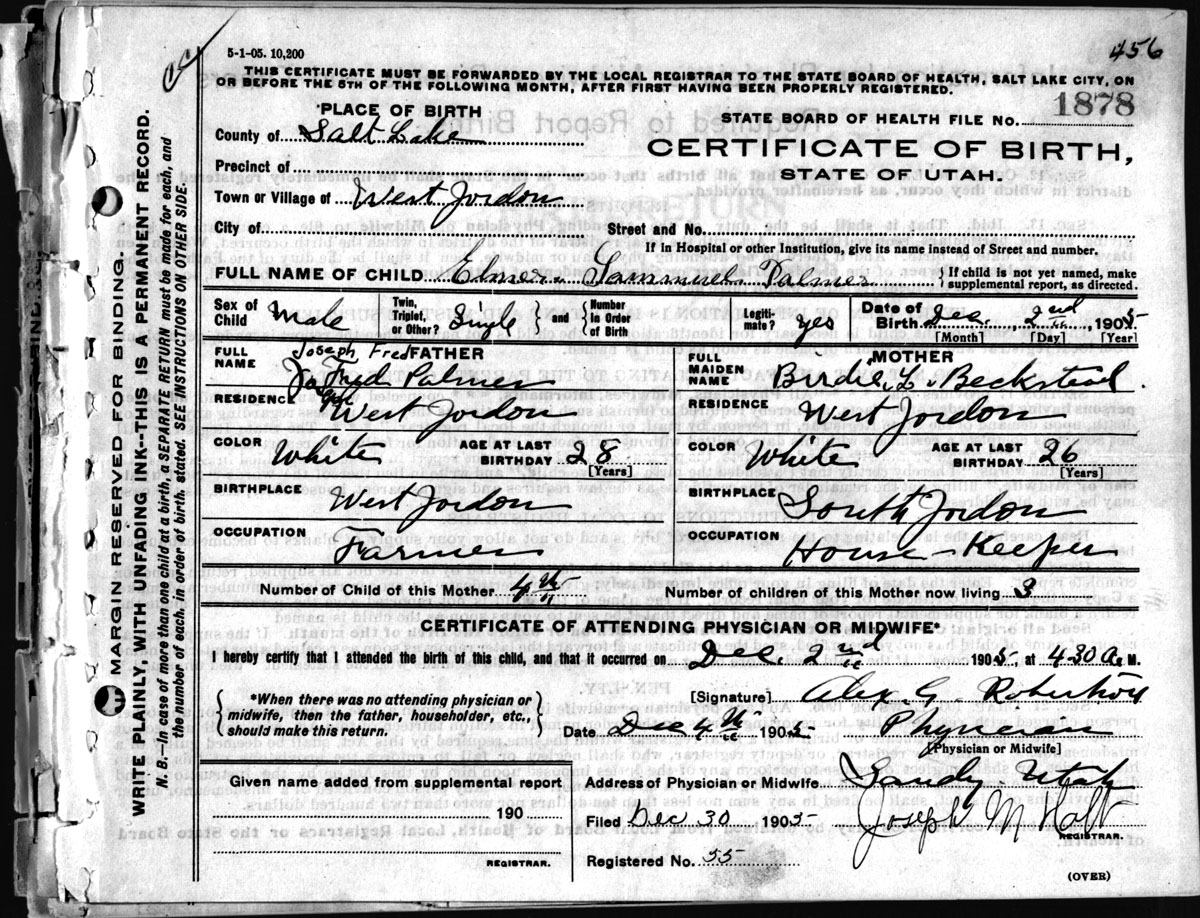 5-1-05. 10,200
456
THIS CERTIFICATE MUST BE FORWARDED BY THE LOCAL REGISTRAR TO THE STATE BOARD OF HEALTH, SALT LAKE CITY, ON
OR BEFORE THE 5TH OF THE FOLLOWING MONTH, AFTER FIRST HAVING BEEN PROPERLY REGISTERED.
MARGIN RESERVED FOR BINDING.
WRITE PLAINLY, WITH UNFADING INK--THIS IS A PERMANENT RECORD.
N. B.--In case of more than one child at a birth, a SEPARATE RETURN must be made for each, and
the number of each, in order of birth, stated. SEE INSTRUCTIONS ON OTHER SIDE.
PLACE OF BIRTH
STATE BOARD OF HEALTH FILE NO. 1878
County of Salt Lake
CERTIFICATE OF BIRTH,
STATE OF UTAH.
Precinct of
Town or Village of West Jordon
City of Street and No.
If in Hospital or other Institution, give its name instead of Street and number.
FULL NAME OF CHILD Elmer Sammuel Palmer { If child is not yet named, make
supplemental report, as directed.
Sex of Child Male Twin, Triplet, or Other? Single } and { Number in Order of Birth Legiti- mate? yes Date of Birth Dec. 2nd 1905
[Month] [Day] [Year]
FATHER
FULL NAME Joseph Fred
Fred Palmer
RESIDENCE West Jordon
COLOR White AGE AT LAST BIRTHDAY 28
[Years]
BIRTHPLACE West Jordon
OCCUPATION Farmer
MOTHER
FULL MAIDEN NAME Birdie L. Beckstead
RESIDENCE West Jordon
COLOR White AGE AT LAST BIRTHDAY 26
[Years]
BIRTHPLACE South Jordon
OCCUPATION House-Keeper
Number of Child of this Mother 4th Number of children of this Mother now living 3
CERTIFICATE OF ATTENDING PHYSICIAN OR MIDWIFE*
I hereby certify that I attended the birth of this child, and that it occurred on Dec. 2nd 1905, at 430 A. M.
{ *When there was no attending physician or
midwife, then the father, householder, etc.,
should make this return. }
[Signature] Alex. G. Robertson
Date Dec 4th 1905 Physician
[Physician or Midwife]
Given name added from supplemental report
190
REGISTRAR.
Address of Physician or Midwife Sandy Utah
Filed Dec 30 1905 Joseph M Holt
REGISTRAR.
Registered No. 55
(OVER)